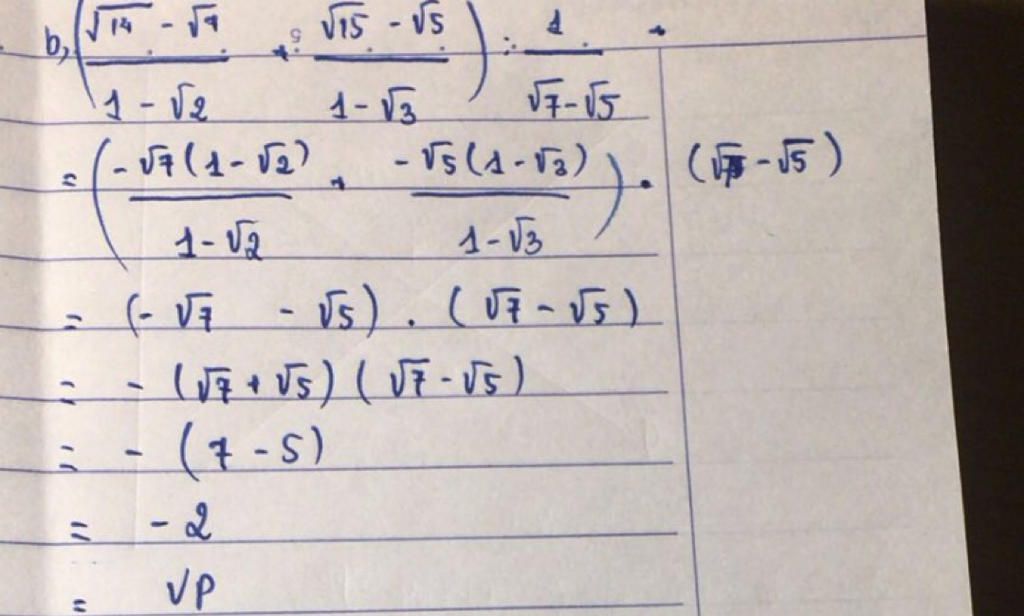 b, (√14 - √7 / 1 - √2 + √15 - √5 / 1 - √3) : 1 / √7 - √5
= (-√7(1 - √2) / 1 - √2 + -√5(1 - √3) / 1 - √3) . (√7 - √5)
= (- √7 - √5) . (√7 - √5)
= - (√7 + √5) (√7 - √5)
= - (7 - 5)
= - 2
= VP